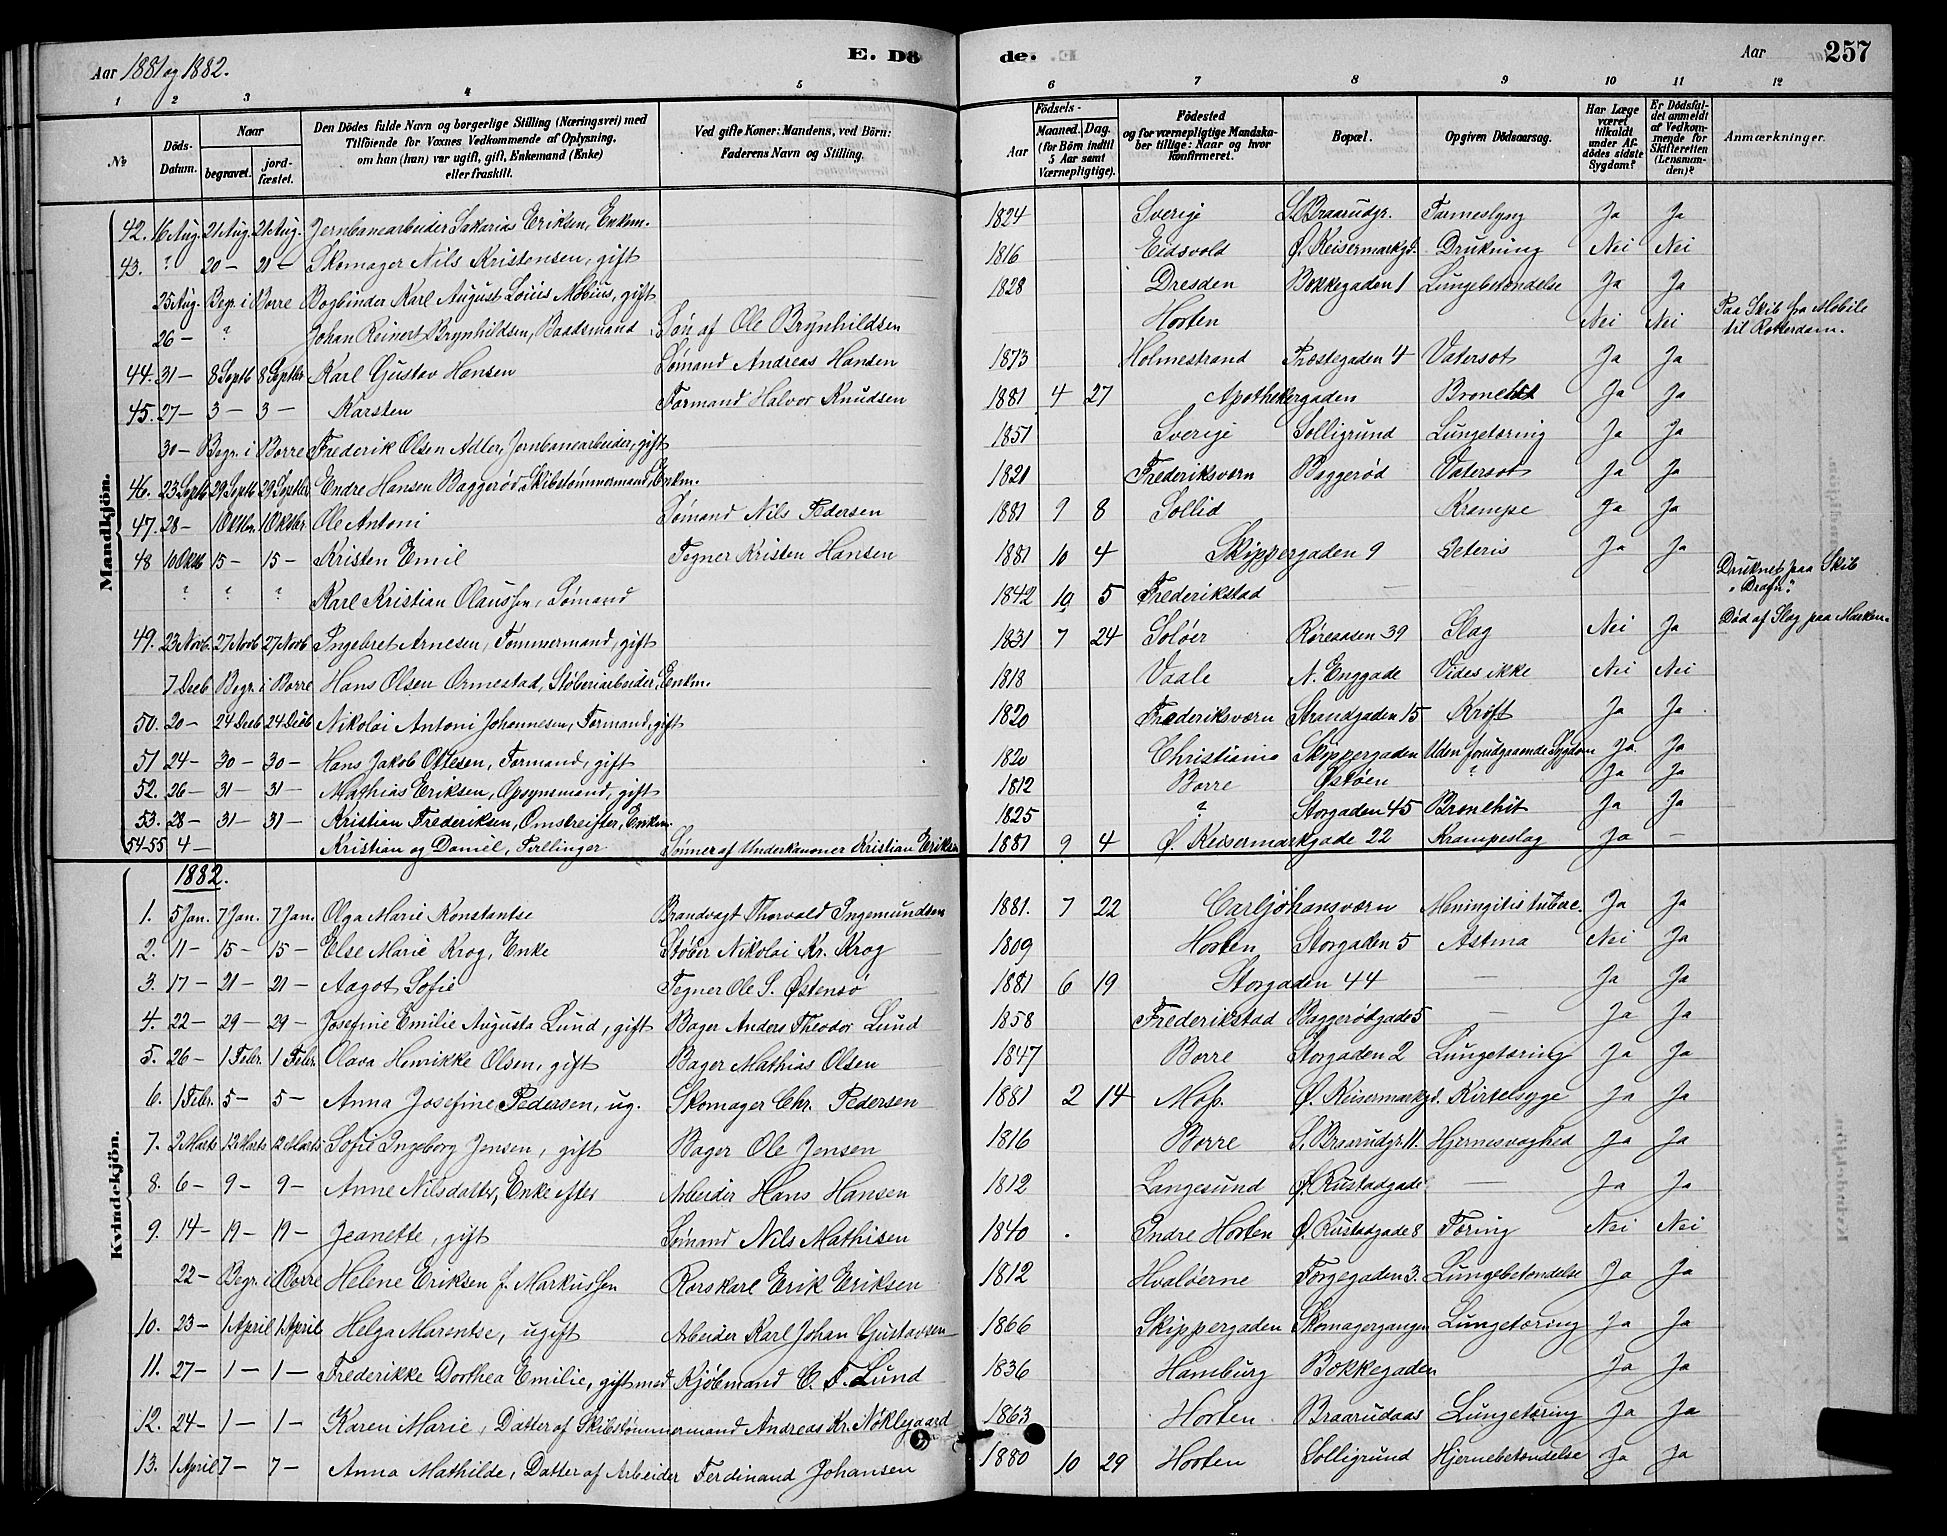 Aar 1881 og 1882. E. Dö
1 2 3 4 5
No Döds-Datum. Naar begravet. jord-fæstet. Den Dödes fulde Navn og borgerlige Stilling (Næringsvei) med Tilföiende for Voxnes Vedkommende af Oplysning. om han (hun) var ugift, gift, Enkemand (Enke) eller fraskilt. Ved gifte Koner: Mandens, ved Börn: Faderens Navn og Stilling.
Mandkjön.
42. 16 Aug. 21 Aug. 21 Aug. Jernbanearbeider Sakarias Eriksen, Enkm.
43. ? 20 — 21 — Skomager Nils Kristensen, gift
25 Aug. Begr. i Borre Bogbinder Karl August Louis Møbius, gift
26 — ? Johan Reinert Brynhildsen, Baadsmand Søn af Ole Brynhildsen
44. 31 — 8 Septb 8 Septbr Karl Gustav Hansen Sømand Andreas Hansen
45. 27 — 3 — 3 — Karsten Formand Halvor Knudsen
30 — Begr. i Borre Frederik Olsen Adler, Jernbanearbeider, gift
46. 23 Septb 29 Septb 29 Septbr Endre Hansen Baggerød, Skibstømmermand, Enkm.
47. 28 — 1 Oktbr. 1 Oktbr. Ole Antoni Sømand Nils Pedersen
48 10 Oktb 15 — 15 — Kristen Emil Tegner Kristen Hansen
? ? ? Karl Kristian Olaussen, Sømand
49. 23 Novb. 27 Novb 27 Novb Ingebret Arnesen, Tømmermand, gift
7 Decb Begr. i Borre Hans Olsen Ormestad, Støberiarbeider, Enkm.
50. 20 — 24 Decb 24 Decb Nikolai Antoni Johannesen, Formand, gift
51 24 — 30 — 30 — Hans Jakob Ottesen, Formand, gift
52. 26 — 31 — 31 — Mathias Eriksen, Opsynsmand, gift
53. 28 — 31 — 31 — Kristian Frederiksen, Omstreifer, Enkm.
54-55 4 — Kristian og Daniel, Tvillinger Sønner af Underkanoner Kristian Eriksen
Kvindekjön.
1882.
1. 5 Jan. 7 Jan. 7 Jan. Olga Marie Konstantse Brandvagt Thorvald Ingemundsen
2. 11 — 15 — 15 — Else Marie Krog, Enke Støber Nikolai Kr. Krog
3. 17 — 21 — 21 — Aagot Sofie Tegner Ole S. Østensø
4. 22 — 29 — 29 — Josefine Emilie Augusta Lund, gift Bager Anders Theodor Lund
5. 26 — 1 Febr. 1 Febr. Olava Henrikke Olsen, gift Bager Mathias Olsen
6. 1 Febr. 5 — 5 — Anna Josefine Pedersen, ug. Skomager Chr. Pedersen
7. 2 Marts 12 Marts 12 Marts Sofie Ingeborg Jensen, gift Bager Ole Jensen
8. 6 — 9 — 9 — Anne Nilsdatter, Enke efter Arbeider Hans Hansen
9. 14 — 19 — 19 — Jeanette, gift Sømand Nils Mathisen
22 — Begr. i Borre Helene Eriksen f. Markussen Rorskarl Erik Eriksen
10. 23 — 1 April 1 April Helga Marentse, ugift Arbeider Karl Johan Gustavsen
11. 27 — 1 — 1 — Frederikke Dorthea Emilie, gift med Kjøbmand C. F. Lund
12. 24 — 1 — 1 — Karen Marie, Datter af Skibstømmermand Andreas Kr. Nøklegaard
13. 1 April 7 — 7 — Anna Mathilde, Datter af Arbeider Ferdinand Johansen
de. Aar 257
6 7 8 9 10 11 12
Födsels- Aar Maaned. Dag. (for Börn indtil 5 Aar samt Værnepligtige). Födested og for værnepligtige Mandskaber tillige: Naar og hvor konfirmeret. Bopæl. Opgiven Dödsaarsag. Har Læge været tilkaldt under Afdödes sidste Sygdom? Er Dödsfaldet anmeldt af Vedkommende for Skifteretten (Lensmanden)? Anmærkninger.
1824 Sverige S. Braarudgr. Tarmeslyng Ja Ja
1816 Eidsvold Ø. Keisermarkgd. Drukning Nei Nei
1828 Dresden Bokkegaden 1 Lungebetændelse Ja Ja
Horten Nei Nei Paa Skib fra Mobile til Rotterdam.
1873 Holmestrand Præstegaden 4 Vatersot Ja Ja
1881 4 27 Apothekergaden Bronchit Ja Ja
1851 Sverige Solligrund Lungetæring Ja Ja
1821 Frederiksværn Baggerød Vatersot Ja Ja
1881 9 8 Sollid Krampe Ja Ja
1881 10 4 Skippergaden 9 Icteris Ja Ja
1842 10 5 Frederikstad — Druknet paa Skib "Drafn".
1831 7 24 Soløer Røreaasen 39 Slag Nei Ja Død af Slag paa Marken.
1818 Vaale N. Enggade Vides ikke Nei Nei
1820 Frederiksværn Strandgaden 15 Kræft Ja Ja
1820 Christiania Skippergaden Uden forudgaaende Sygdom Ja Ja
1812 Borre Østøen ? Ja Ja
1825 ? Storgaden 45 Bronchit Ja Ja
1881 9 4 Ø. Keisermarkgade 22 Krampeslag Ja —
1881. 7 22 Carljohansværn Meningitis tuberc. Ja Ja
1809 Horten Storgaden 5 Astma Nei Ja
1881 6 19 Storgaden 44 — Ja Ja
1858 Frederikstad Baggerødgade 5 — Ja Ja
1847 Borre Storgaden 2 Lungetæring Ja Ja
1881 2 14 Moss. Ø. Keisermarkgd. Kirtelsyge Ja Ja
1816 Borre S. Braarudgr. 11. Hjernesvaghed Ja Ja
1812 Langesund Ø. Rustadgade — Ja Ja
1840 Indre Horten Ø. Rustadgade 8 Tæring Nei Nei
1812 Hvaløerne Torgegaden 3. Lungebetændelse Ja Ja
1866 Skippergaden Skomagergangen Lungetæring Ja Ja
1836 Hamburg Bokkegaden Ja Ja
1863 Horten Braarudaas Lungetæring Ja Ja
1880 10 29 Horten Solligrund Hjernebetændelse Ja Ja